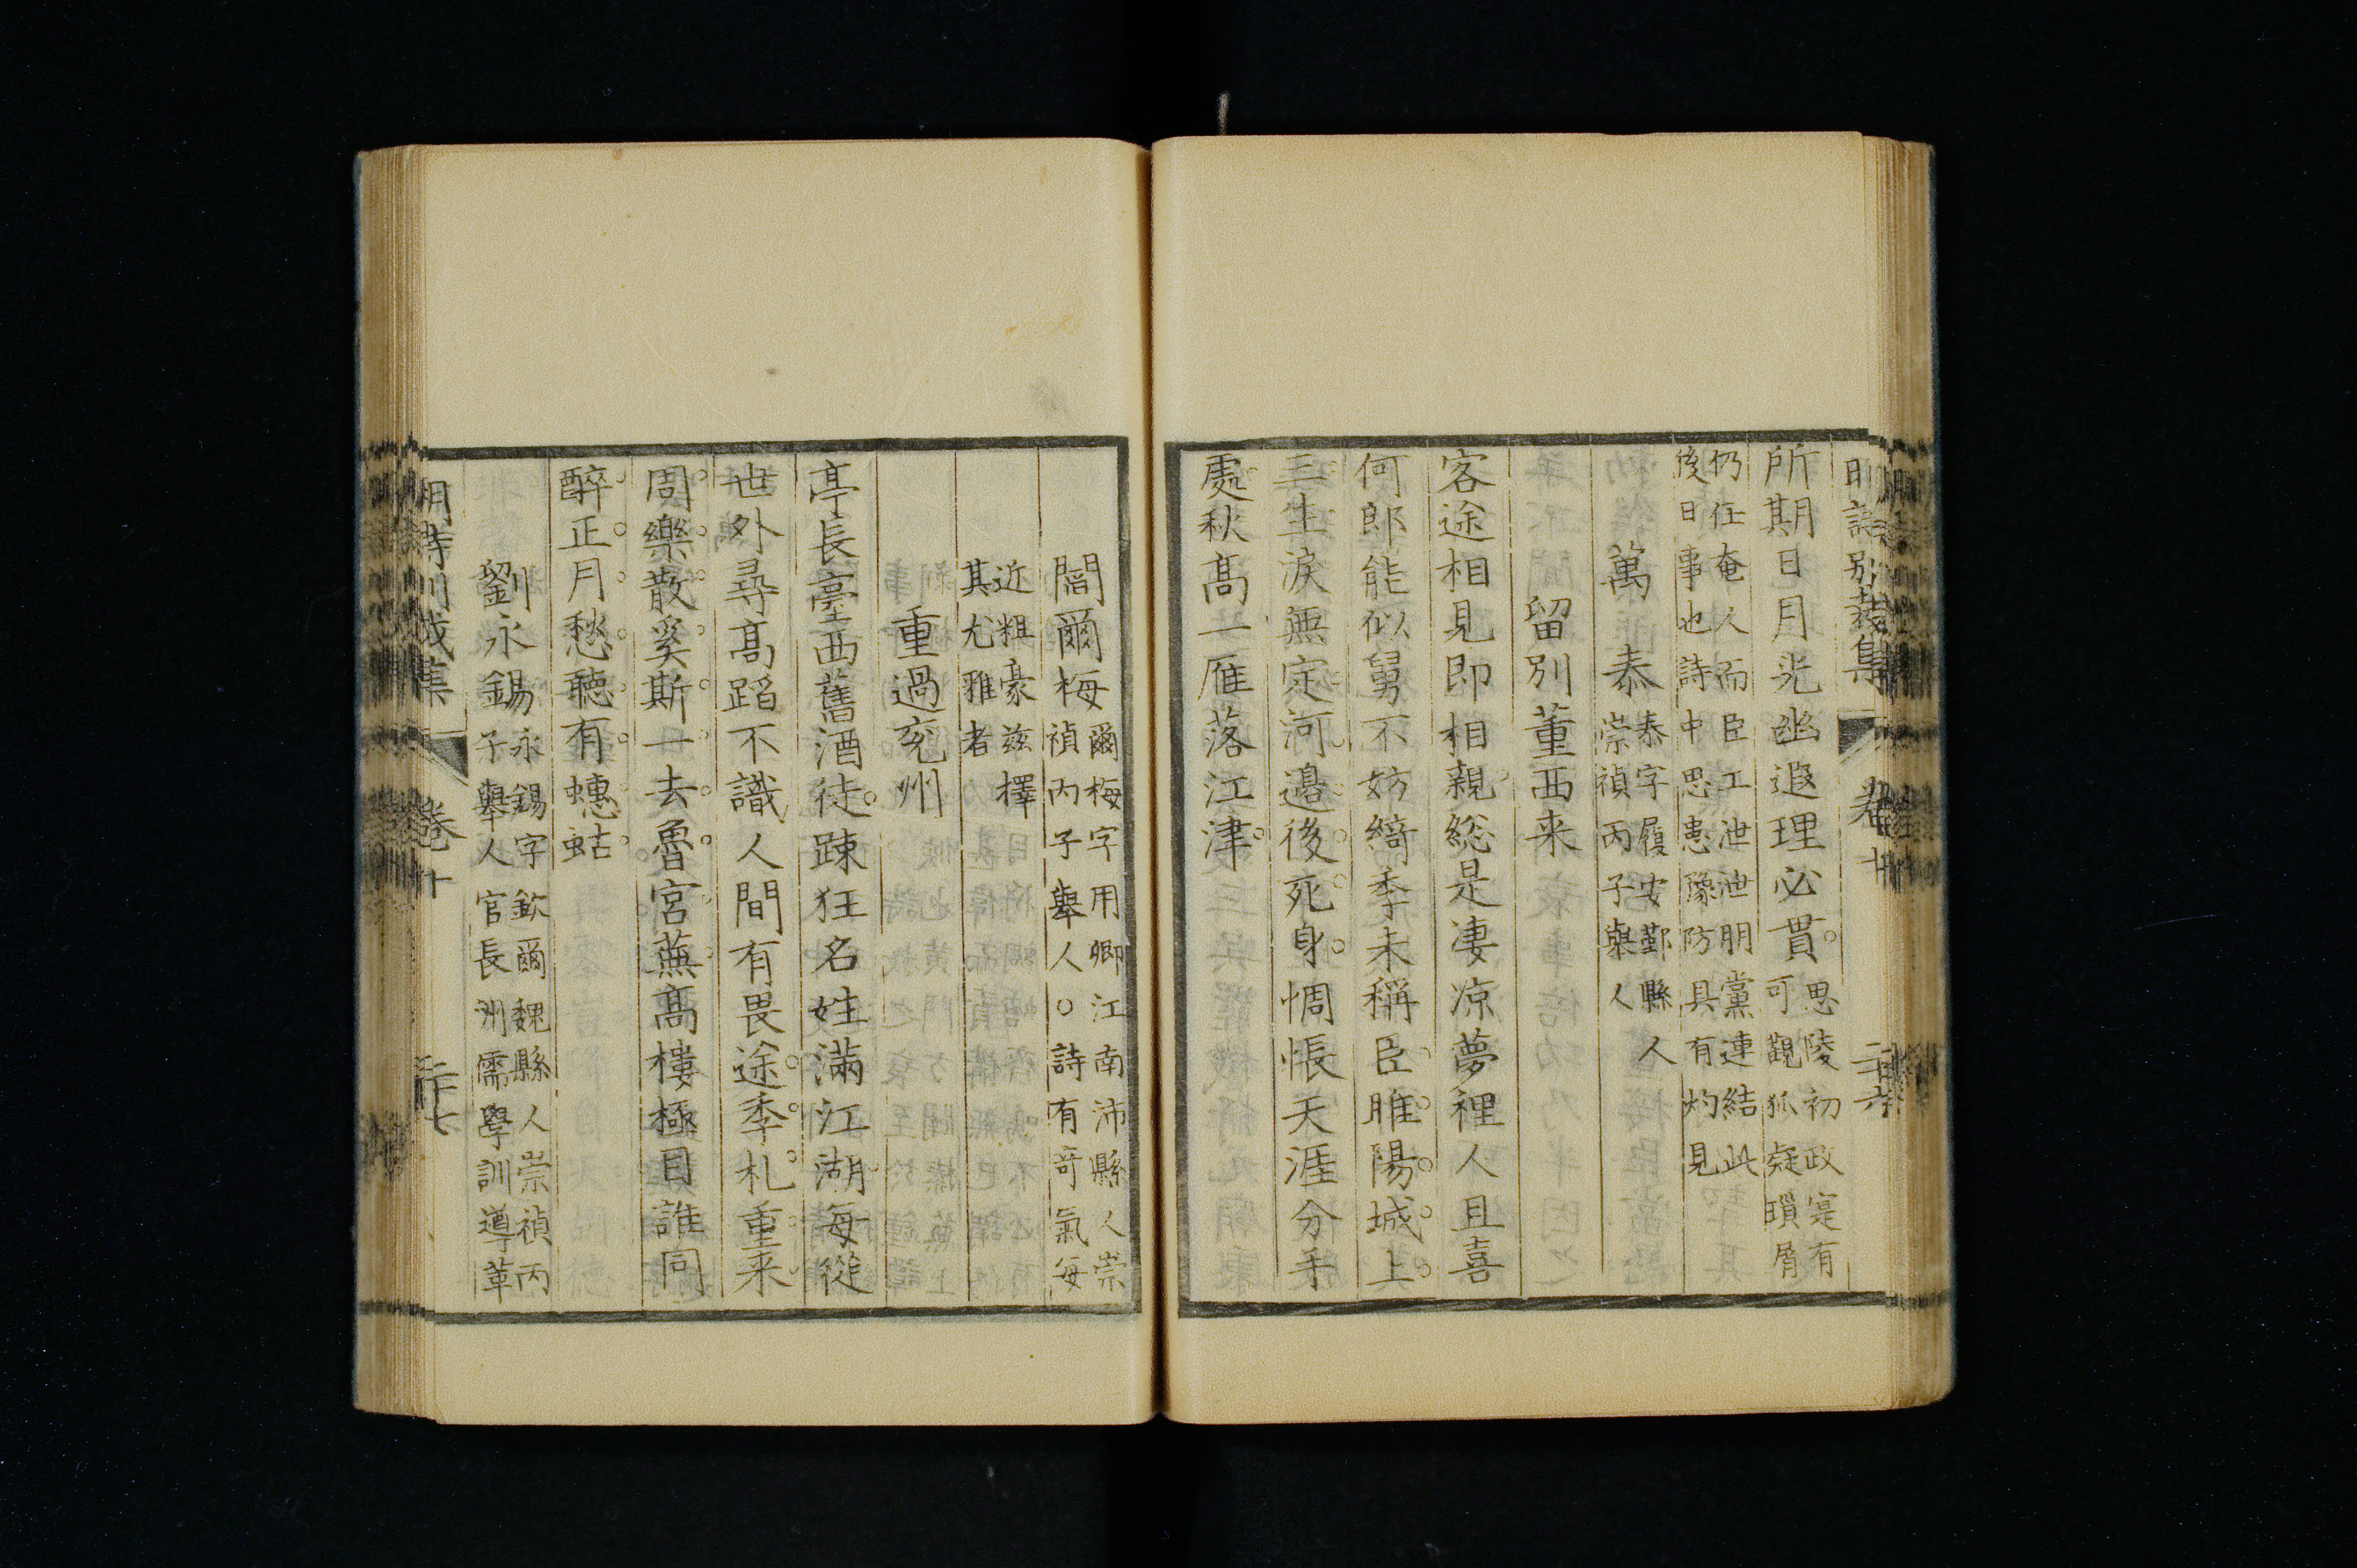 明詩別裁集 卷十 二十六
所期日月光幽遐理必貫思陵初政寔有可觀狐疑瑣屑
仍任奄人而臣工泄泄朋黨連結此
後日事也詩中思患豫防具有灼見
萬泰泰字履安鄞縣人崇禎丙子舉人
留別董西来
客途相見即相親総是凄凉夢裡人且喜
何郎能似舅不妨綺季未稱臣睢陽城上
三生淚無定河邉後死身惆悵天涯分手
處秋髙一雁落江津
閻爾梅爾梅字用卿江南沛縣人崇禎丙子舉人○詩有奇氣每
近粗豪兹擇
其尤雅者
重過兖州
亭長臺西舊酒徒踈狂名姓滿江湖每從
世外尋髙蹈不識人間有畏途季札重来
周樂散奚斯一去魯宮蕪髙樓極目誰同
醉正月愁聽有蟪蛄
劉永錫永錫字欽爾魏縣人崇禎丙子舉人官長洲儒學訓導革
明詩別裁集 卷十 二十七